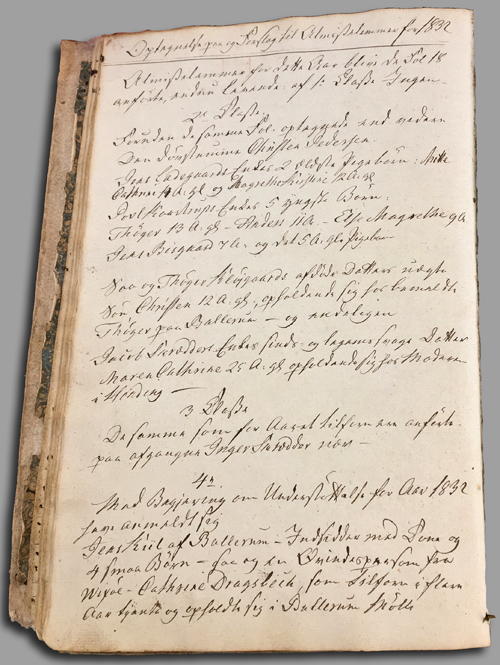 Optegnelse paa og Forslag til Almisselemmer for 1832
Almisselemmer for dette Aar blive de Fol 18
anførte, endnu levende: af 1. Classe Ingen.
2n Classe.
Foruden de samme Fol. optegnede end videre
Den Døvstumme Christen Pedersen.
Jens Ladegaards Enkes 2 ældste Pigebørn: Mette
Cathrine A: gl og Magrethe Kirstine 12 A: gl
Povl Kaastrups Enkes 5 yngste Børn:
Thøger 13 A: gl - Anders 11 A. - Else Magrethe 9 A
Jens Birgaard 7 A: og det 5 A: gl. Pigebarn
Saa og Thøger afdøde Datters uægte
Søn Christen 12 A: gl, opholdende sig hos bemeldte
Thøger paa Ballerum - og endeligen
Jacob Skrædders Enkes sinds- og legemssvage Datter
Maren Cathrine 25 A: gl opholdende sig hos Moderen
i
3 Classe
De samme som for Aaret tilforn ere anførte
paa afgangne Inger Skrædder nær -
4n
Med Begjering om Understøttelse for Aar 1832
have anmeldt sig
Jens Kiil af Ballerum - Indsidder med Kone og
4 smaa Børn - saa og en Qvindesperson fra
Wixøe - Cathrine Dragsbech, som tilforn i flere
Aar tjente og opholdte sig i Ballerum Mølle